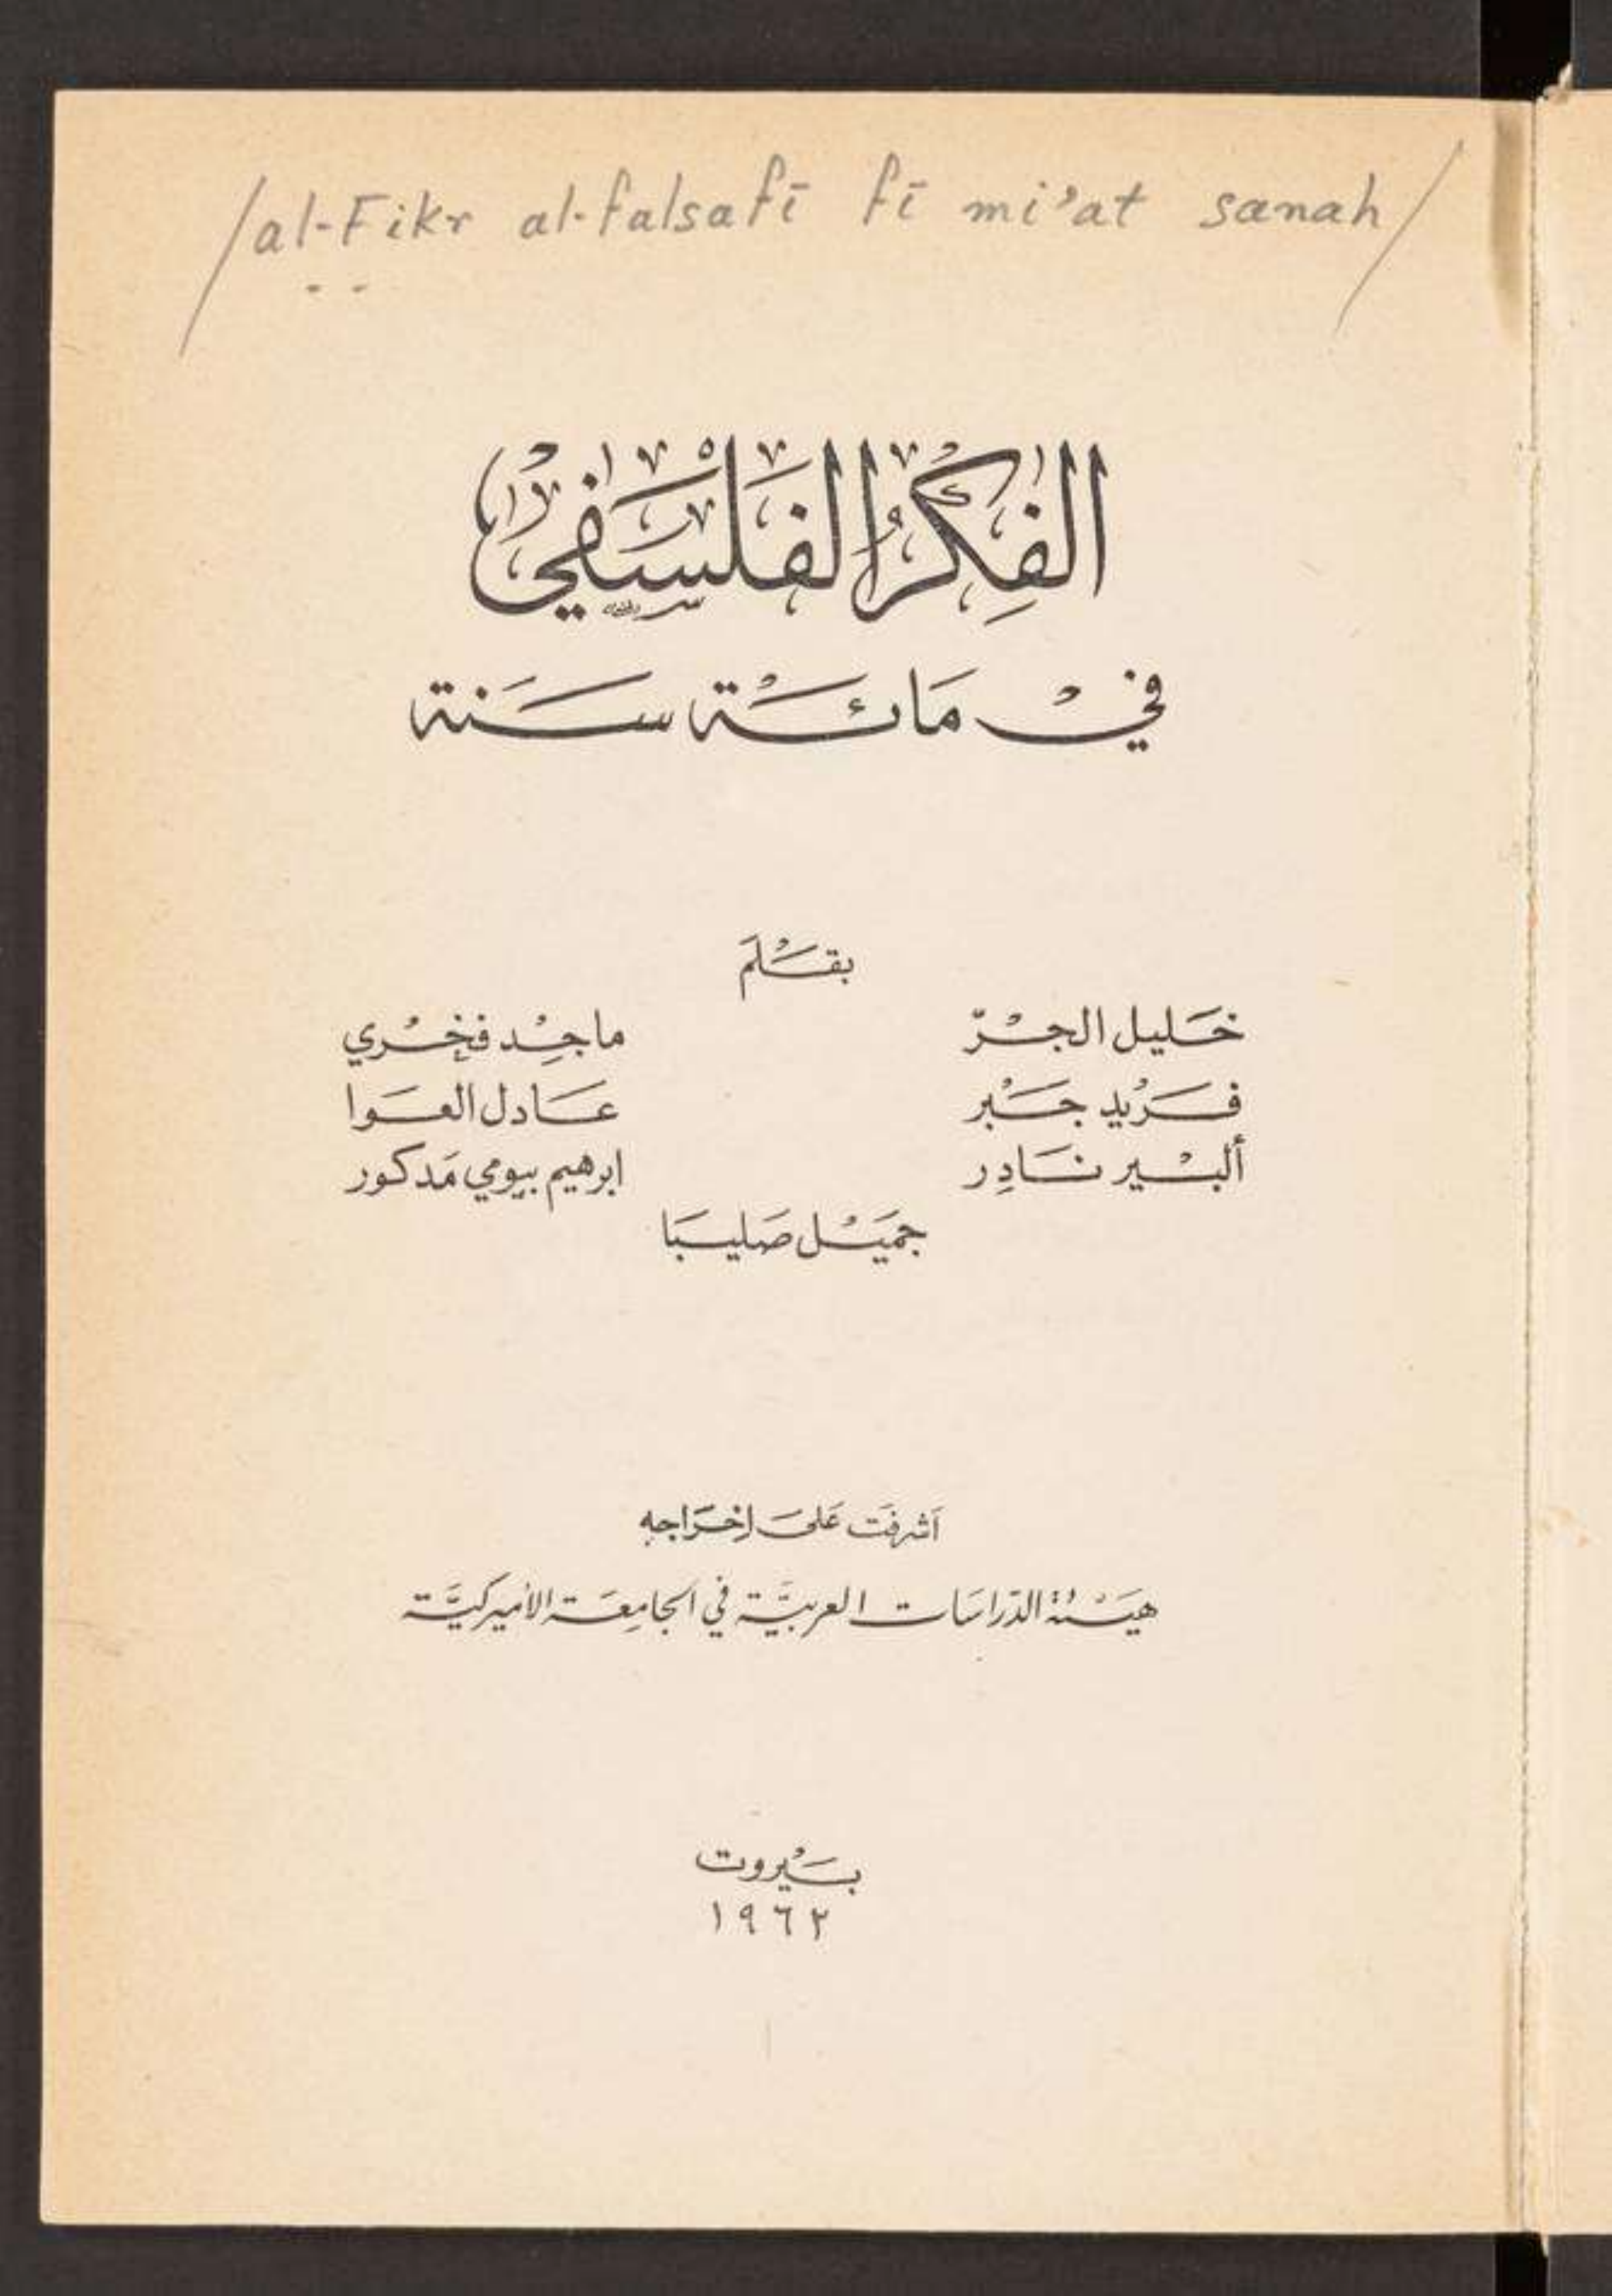 /al-Fikr al-falsafī fī mi'at sanah/
الفكر الفلسفي
في مائة سنة
بقلم
خليل الجرّ ماجد فخري
فريد جبر عادل العوا
ألبير نادر ابرهيم بيومي مدكور
جميل صليبا
أشرفت على إخراجه
هيئة الدّراسات العربيّة في الجامعة الأميركيّة
بيروت
١٩٦٢